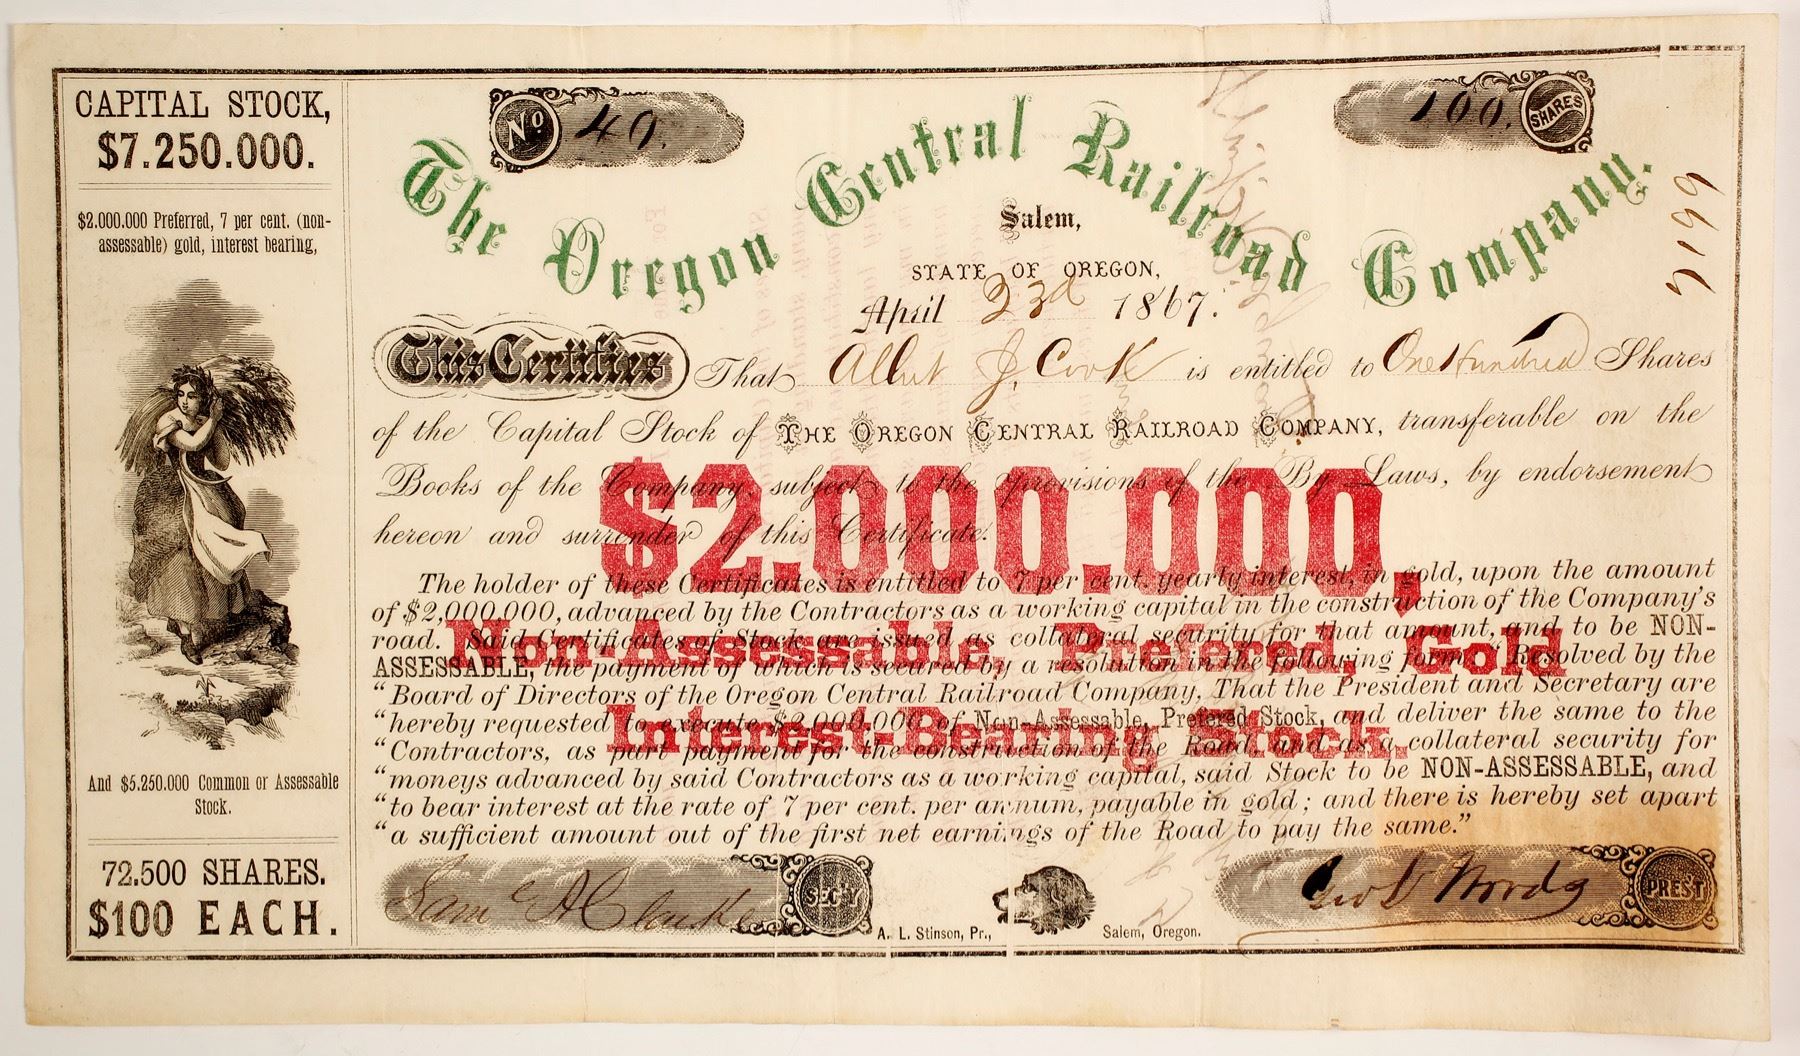 CAPITAL STOCK,
$7.250.000.
$2.000.000 Preferred, 7 per cent. (non-
assessable) gold, interest bearing,
And $5.250.000 Common or Assessable
Stock.
72.500 SHARES.
$100 EACH.
No. 49.
100. SHARES
The Oregon Central Railroad Company.
Salem,
STATE OF OREGON,
April 23d 1867.
This Certifies That Albert J. Cook is entitled to One Hundred Shares
of the Capital Stock of THE OREGON CENTRAL RAILROAD COMPANY, transferable on the
Books of the Company, subject to the provisions of the By Laws, by endorsement
hereon and surrender of this Certificate.
$2.000.000,
Non-Assessable, Prefered, Gold
Interest-Bearing Stock.
The holder of these Certificates is entitled to 7 per cent. yearly interest, in gold, upon the amount
of $2,000,000, advanced by the Contractors as a working capital in the construction of the Company's
road. Said Certificates of Stock are issued as collateral security for that amount, and to be NON-
ASSESSABLE, the payment of which is secured by a resolution in the following form: "Resolved by the
"Board of Directors of the Oregon Central Railroad Company, That the President and Secretary are
"hereby requested to execute $2,000,000 of Non-Assessable, Prefered Stock, and deliver the same to the
"Contractors, as part payment for the construction of the Road, and as a collateral security for
"moneys advanced by said Contractors as a working capital, said Stock to be NON-ASSESSABLE, and
"to bear interest at the rate of 7 per cent. per annum, payable in gold; and there is hereby set apart
"a sufficient amount out of the first net earnings of the Road to pay the same."
Sam A Clarke SEC'Y
A. L. Stinson, Pr., Salem, Oregon.
Geo L Woods PRES'T